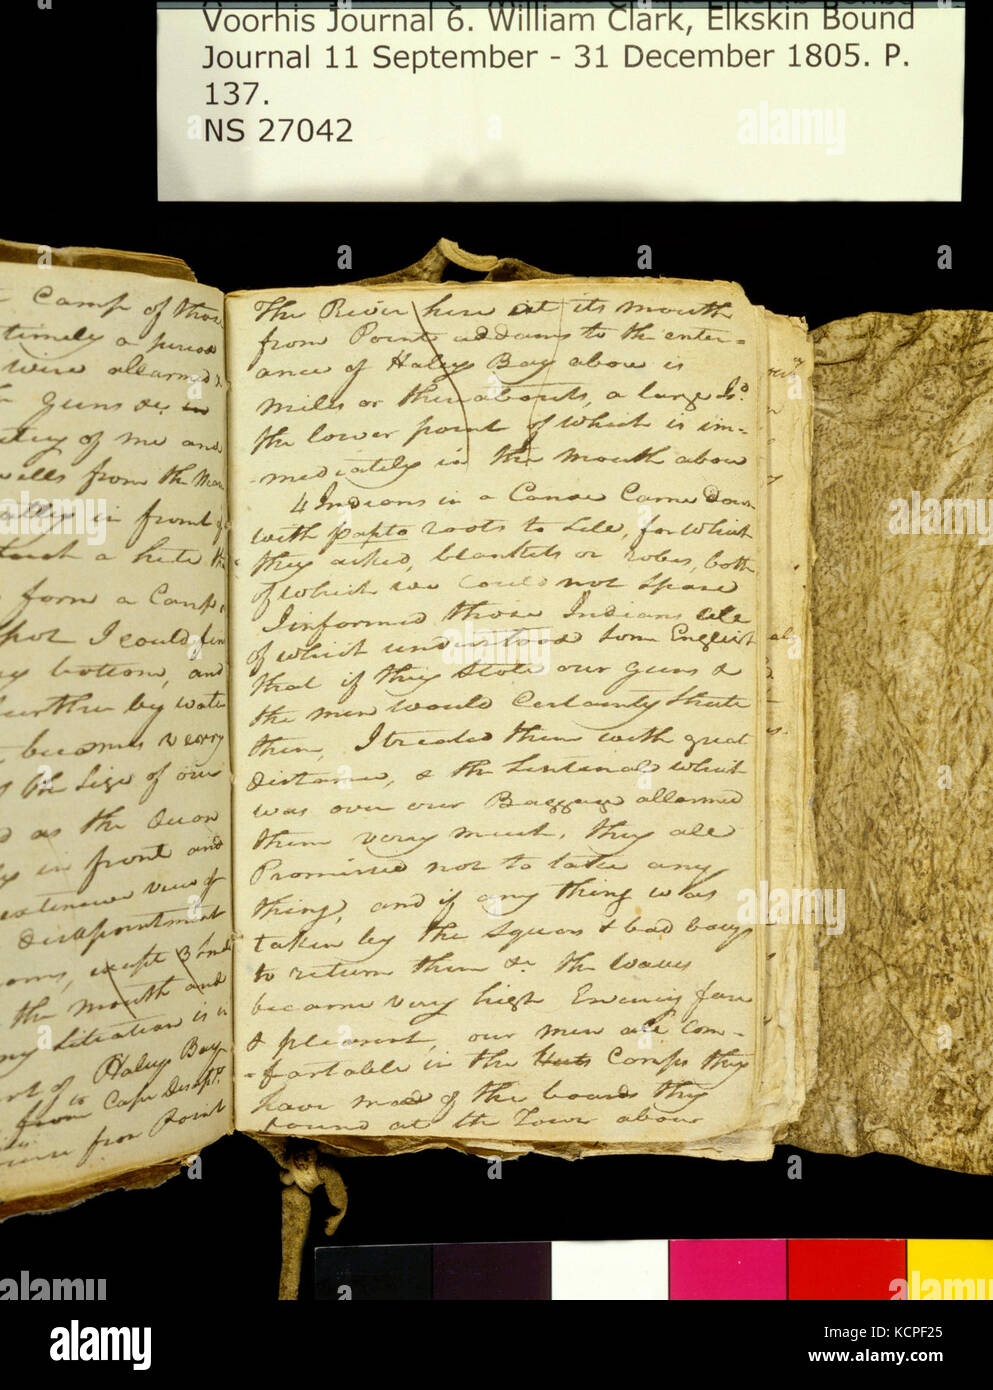 Voorhis Journal 6. William Clark, Elkskin Bound
Journal 11 September - 31 December 1805. P.
137.
NS 27042
Camp of those
timely a period
were allarmed &
guns &c. in
of me and
from the
in front of
a hute
form a Camp
Spot I could find
bottom, and
further by water
becomes verry
the Size of our
as the Ocian
in front and
extencive view of
disapointment
except 3 Ind
the mouth and
my Situation is in
of Haley Bay
from Cape Disapt.
from Point
The River here at its mouth
from Point addams to the enter=
ance of Haley Bay above is
miles or thereabouts, a large Isd.
the lower point of which is im=
-mediately in the mouth above
4 Indians in a Canoe Came down
with papto roots to Sell, for which
they asked, blankets or robes, both
of which we could not Spare
I informed those Indians all
of which understood Some English
that if they Stole our guns &
the men would Certainly Shute
them, I treated them with great
distance, & the Sentinal which
was over our Baggage allarmed
them verry much, they all
Promised not to take any
thing, and if any thing was
taken by the Squars & bad boys
to return them &c. the waves
became very high Evening fare
& pleasent, our men all Com=
=fortable in the Huts Camps they
have made of the boards they
found at the Town above
alamy
alamy
Image ID: KCPF25
www.alamy.com